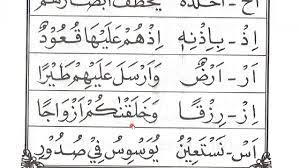 اَخْ - اَخْذَةً يَخْطَفُ اَبْصَارَهُمْ
اِذْ - بِاِذْنِهٖ اِذْهُمْ عَلَيْهَا قُعُوْدٌ
اَرْ - اَرْضٌ وَاَرْسَلَ عَلَيْهِمْ طَيْرًا
اِزْ - رِزْقًا وَخَلَقْنٰكُمْ اَزْوَاجًا
اِسْ - نَسْتَعِيْنُ يُوَسْوِسُ فِيْ صُدُوْرِ